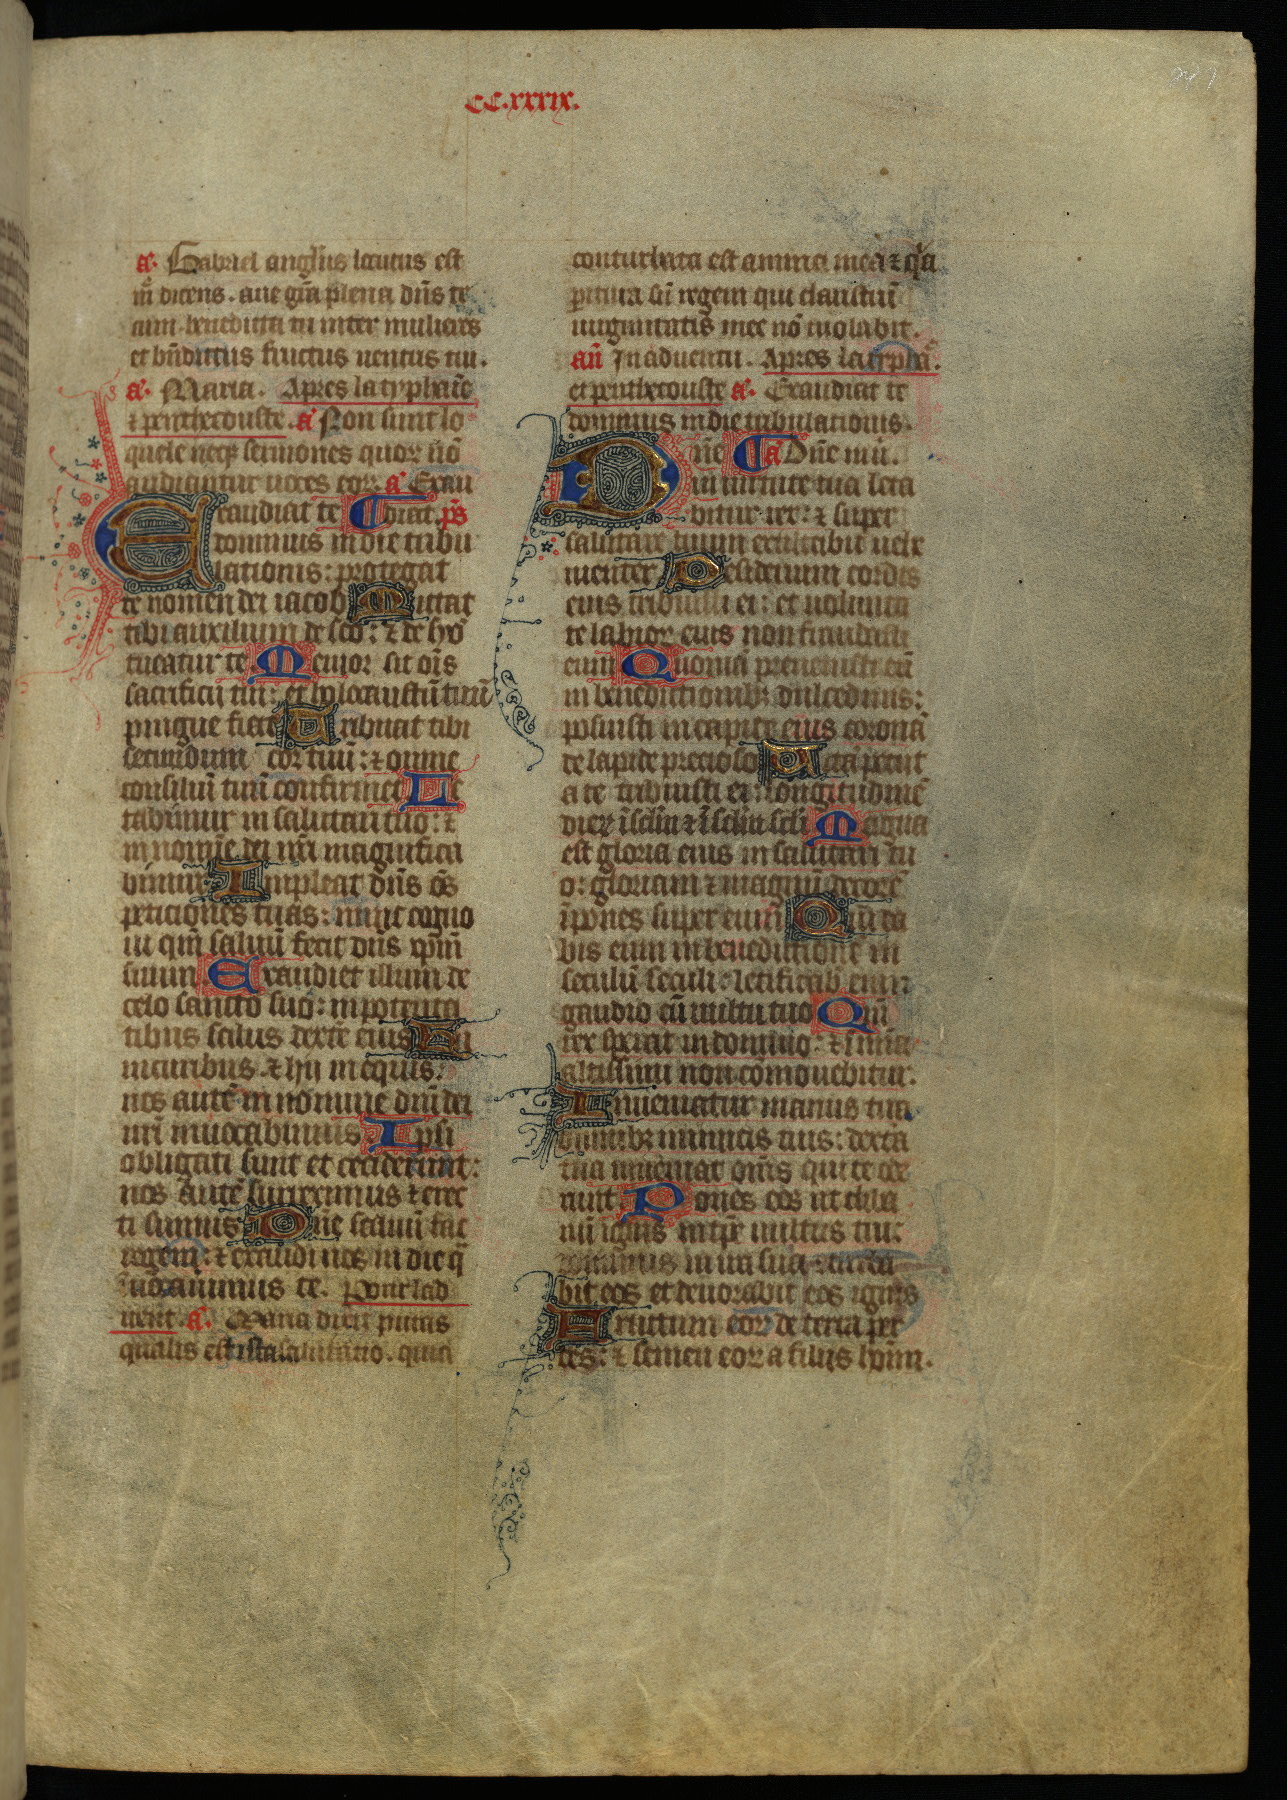 CC.xxxix.
a. Gabriel angelus locutus est
m dicens. aue gra plena dns te
cum. benedicta tu inter mulieres
et bndictus fructus uentris tui.
a. Maria. Apres la typhaie
et penthecouste. a. Non sunt lo
quele neqz sermones quor no
audiantur uoces eor. a. Exau
Exaudiat te Gloriat. ps
dominus in die tribu
lationis: protegat
te nomen dei iacob Mittat
tibi auxilium de sco: et de syo
tueatur te. Memor sit ois
sacrificii tui: et holocaustu tuu
pingue fiat Tribuat tibi
secundum cor tuu: et omne
consiliu tuu confirmet Le
tabimur in salutari tuo: et
in nomine dei nri magnifica
bimur Impleat dns os
peticiones tuas: nunc cogno
ui qm saluu fecit dns xpm
suum Exaudiet illum de
celo sancto suo: in potenta
tibus salus dextre eius Hii
in curribus. et hii in equis:
nos aute in nomine dni dei
nri inuocabimus Ipsi
obligati sunt et ceciderunt:
nos aute surreximus et erec
ti sumus Dne saluu fac
regem: et exaudi nos in die q
inuocauimus te. Pour lad
uent. a. Maria dixit putas
qualis est ista salutatio. quia
conturbata est anima mea et qa
paritura su regem qui claustru
uirginitatis mee no uiolabit.
an In aduentu. Apres la typha.
et penthecouste a. Exaudiat te
dominus in die tribulationis.
Dne Ca Dne mii.
in uirtute tua leta
bitur rex: et super
salutare tuum exultabit uehe
menter Desiderium cordis
eius tribuisti ei: et uolunta
te labior eius non fraudasti
eum Quonia preuenisti eu
in benedictionibz dulcedinis:
posuisti in capite eius corona
de lapide precioso Uita petiit
a te tribuisti ei: longitudine
dier i sclm et i sclm scli Magna
est gloria eius in salutari tu
o: gloriam et magnu decore
ipones super eum Qm da
bis eum in benedictione in
seculu seculi: letificab eum
gaudio cu uultu tuo Qm
rex sperat in domino: et i mia
altissimi non comouebitur.
Inueniatur manus tua
omnibz inimicis tuis: dextra
tua inueniat omis qui te ode
runt Pones eos ut cliba
nu ignis in tpe uultus tui:
dominus in ira sua conturba
bit eos et deuorabit eos ignis
Fructum eor de terra per
des: et semen eor a filiis homi.